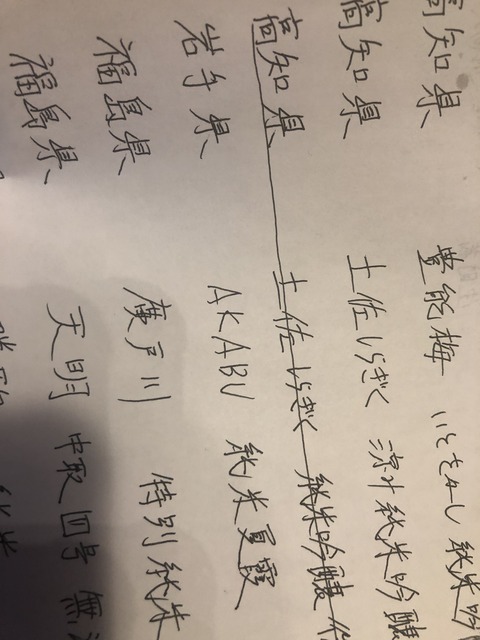 高知県 豊能梅 いとをかし 純米吟
高知県 土佐しらぎく 涼み純米吟醸
高知県 土佐しらぎく 純米吟醸
岩手県 AKABU 純米夏霞
福島県 廣戸川 特別純米
福島県 天明 中取四号 無
純米